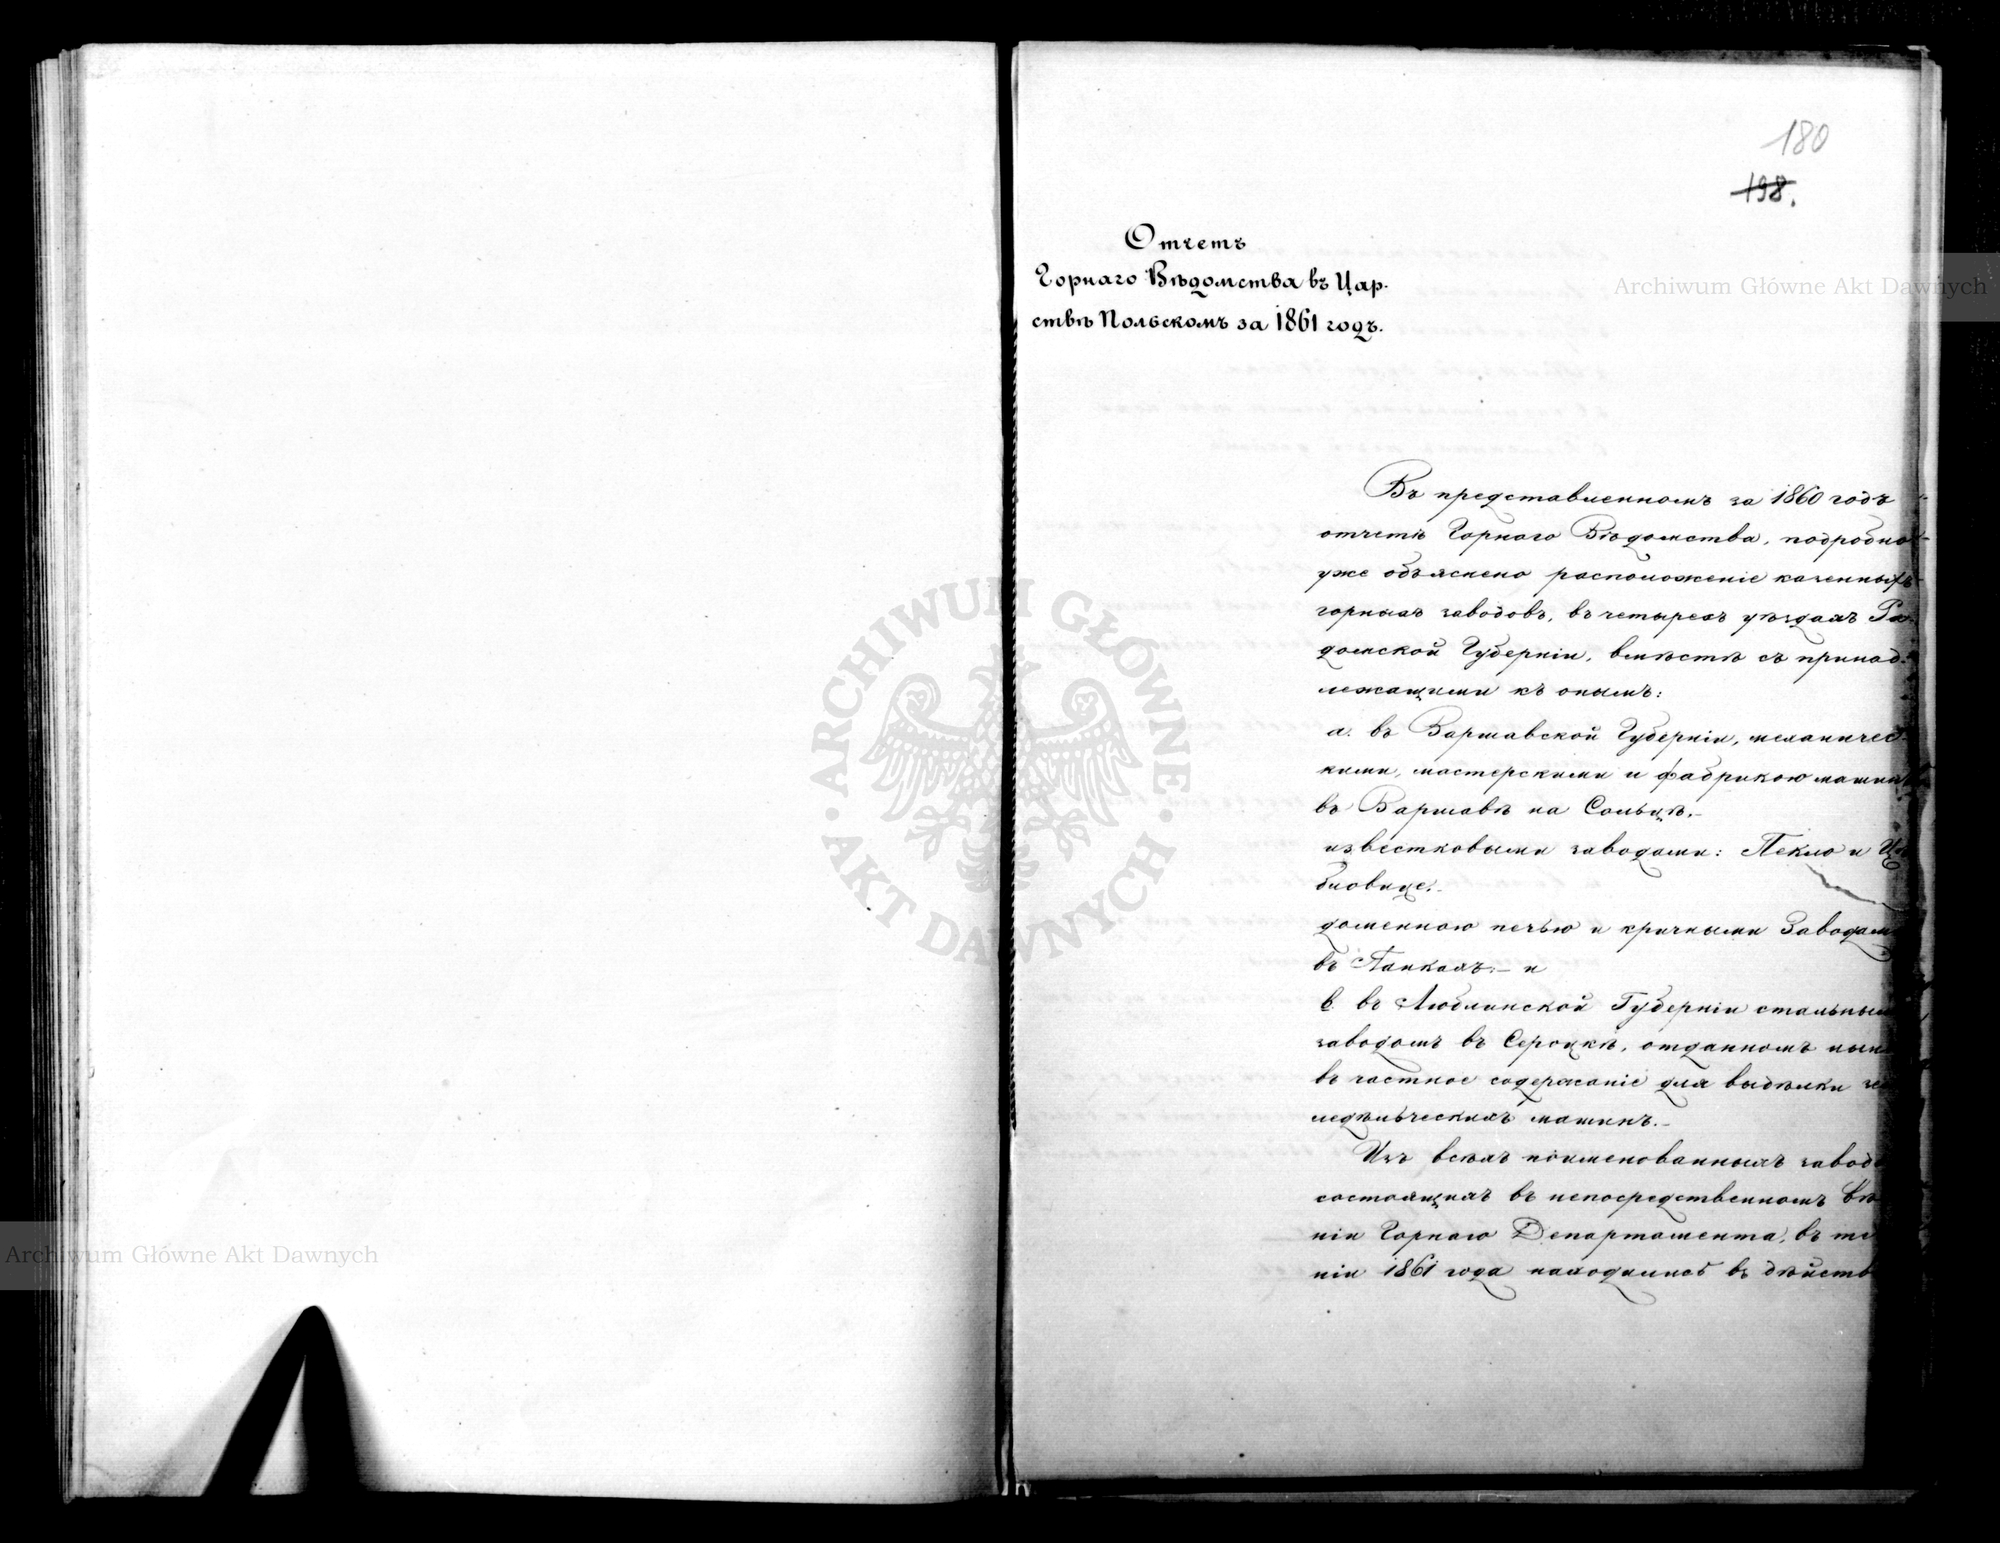 180
198.
Отчетъ
Горнаго Вѣдомства въ Цар-
ствѣ Польскомъ за 1861 годъ.
Въ представленномъ за 1860 годъ
отчетѣ Горнаго Вѣдомства, подробно
уже объяснено расположеніе казенныхъ
горныхъ заводовъ, въ четырехъ уѣздахъ Ра-
домской Губерніи, вмѣстѣ съ принад-
лежащими къ онымъ:
а. въ Варшавской Губерніи, механичес-
кими, мастерскими и фабрикою машинъ
въ Варшавѣ на Сольцѣ.-
известковыми заводами: Пекло и
доменною печью и кричными Заводами
въ Панкахъ.- и
в. въ Люблинской Губерніи стальным
заводомъ въ Сероцкѣ, отданномъ нын
въ частное содержаніе для выдѣлки зе
ледѣльческихъ машинъ.-
Изъ всѣхъ поименованныхъ завод
состоящихъ въ непосредственномъ вѣ
ніи Горнаго Департамента, въ те
ніи 1861 года находились въ дѣйств
ARCHIWUM GŁÓWNE AKT DAWNYCH
Archiwum Główne Akt Dawnych
Archiwum Główne Akt Dawnych